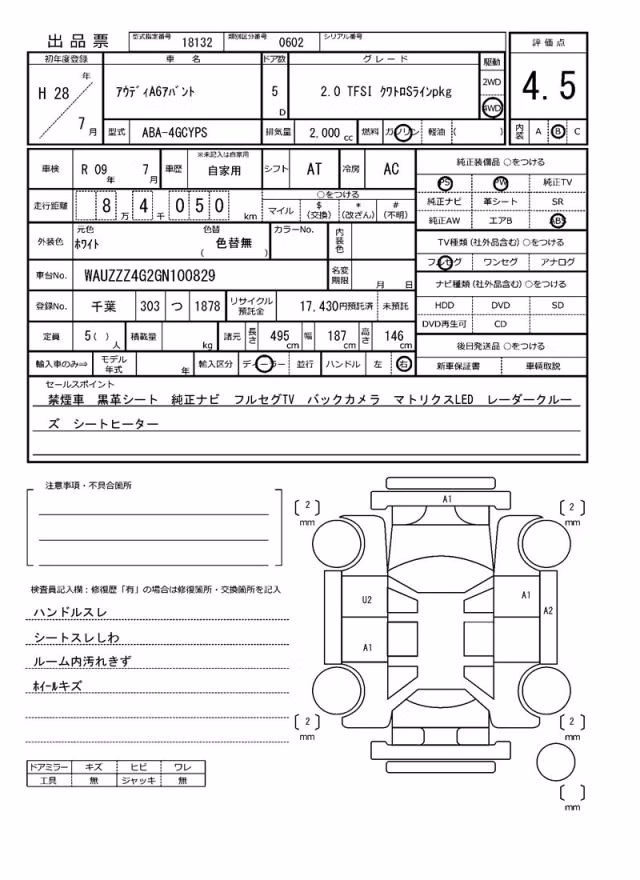 出品票
型式指定番号 18132 類別区分番号 0602 シリアル番号
初年度登録 車名 ドア数 グレード 駆動 評価点
H 28 年 7 月 ｱｳﾃﾞｨA6ｱﾊﾞﾝﾄ 5 D 2.0 TFSI ｸﾜﾄﾛSﾗｲﾝpkg 2WD 4WD 4.5
型式 ABA-4GCYPS 排気量 2,000 cc 燃料 ガソリン 軽油 ( ) 内装 A B C
車検 R 09 年 7 月 車歴 ※未記入は自家用 自家用 シフト AT 冷房 AC
走行距離 8 万 4 千 0 5 0 km ○をつける マイル $ (交換) * (改ざん) # (不明)
外装色 元色 ﾎﾜｲﾄ 色替 ( 色替無 ) カラーNo. 内装色
車台No. WAUZZZ4G2GN100829 名変期限 月 日
登録No. 千葉 303 つ 1878 リサイクル預託金 17,430円預託済 未預託
定員 5( ) 人 積載量 kg 諸元 長さ 495 cm 幅 187 cm 高さ 146 cm
輸入車のみ⇒ モデル年式 年 輸入区分 ディーラー 並行 ハンドル 左 右
純正装備品 ○をつける
PS PW 純正TV
純正ナビ 革シート SR
純正AW エアB ABS
TV種類(社外品含む) ○をつける
フルセグ ワンセグ アナログ
ナビ種類(社外品含む) ○をつける
HDD DVD SD
DVD再生可 CD
後日発送品 ○をつける
新車保証書 車輌取説
セールスポイント
禁煙車 黒革シート 純正ナビ フルセグTV バックカメラ マトリクスLED レーダークルー
ズ シートヒーター
注意事項・不具合箇所
検査員記入欄：修復歴「有」の場合は修復箇所・交換箇所を記入
ハンドルスレ
シートスレしわ
ルーム内汚れきず
ﾎｲｰﾙキズ
ドアミラー キズ ヒビ ワレ
工具 無 ジャッキ 無
A1
2 mm
2 mm
U2
A1
A2
A1
2 mm
2 mm
mm